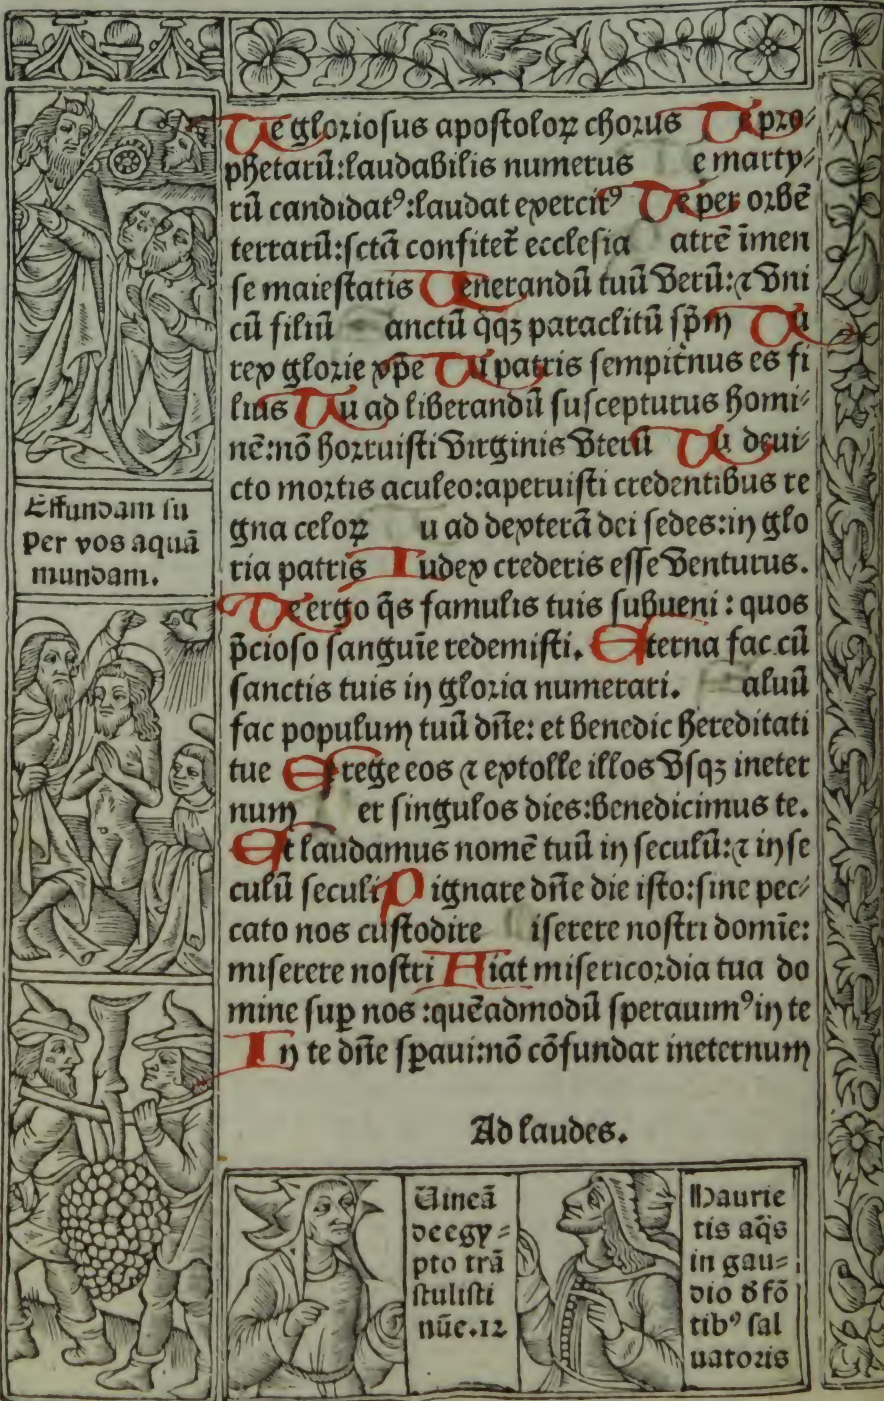 Te gloriosus apostoloꝝ chorus Te pro⸗
phetarū:laudabilis numerus e marty⸗
rū candidatꝰ:laudat exercitꝰ Te per orbē
terrarū:sctā confitet̄ ecclesia atrē īmen
se maiestatis Uenerandū tuū verū:⁊ vni
cū filiū anctū q̄qꝫ paraclitū sp̄m Tu
rex glorie xp̄e Tu patris sempit̄nus es fi
lius Tu ad liberandū suscepturus homi⸗
nē:nō horruisti virginis vterū Tu deui⸗
cto mortis aculeo:aperuisti credentibus re
gna celoꝝ u ad dexterā dei sedes:in glo
ria patris Iudex crederis esse venturus.
Te ergo q̄s famulis tuis subueni : quos
p̄cioso sanguīe redemisti. Eterna fac cū
sanctis tuis in gloria numerari. aluū
fac populum tuū dn̄e: et benedic hereditati
tue Et rege eos ⁊ extolle illos vsqꝫ ineter
num er singulos dies:benedicimus te.
Et laudamus nomē tuū in seculū:⁊ in se
culū seculi ignare dn̄e die isto:sine pec⸗
cato nos custodire iserere nostri domīe:
miserere nostri iat misericordia tua do
mine suꝑ nos :quēadmodū sperauimꝰ in te
In te dn̄e sꝑaui:nō cōfundar ineternum
Ad laudes.
Effundam su
per vos aquā
mundam.
Uineā
de egy⸗
pto trā
stulisti
nūe.12
Haurie
tis aq̄s
in gau⸗
dio d̄ fō
tibꝰ sal
uatoris